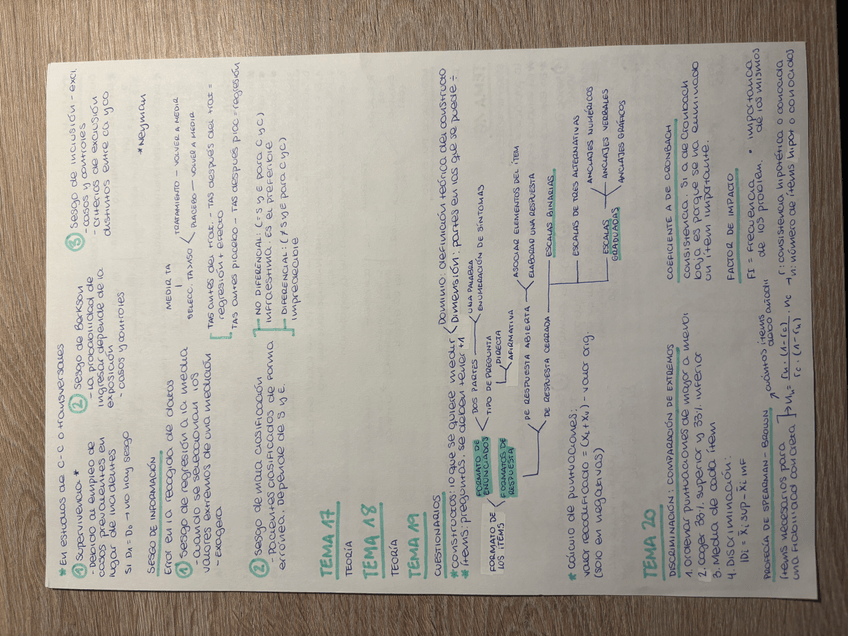 * EN ESTUDIOS DE C-C O TRANSVERSALES
① Supervivencia *
- Debido al empleo de
casos prevalentes en
lugar de incidentes
Si D1 = D0 → no hay sesgo
② Sesgo de Berkson
- La probabilidad de
ingresar depende de la
exposición
- casos y controles
③ Sesgo de inclusión - excl
- casos y controles
- criterios de exclusión
distintos entre ca y co
* Neyman
SESGO DE INFORMACIÓN
Error en la recogida de datos
① Sesgo de regresión a la media
- cuando se seleccionan los
valores extremos de una medición
- exagera
MEDIR TA
SELECC. TA>ISO
TRATAMIENTO - VOLVER A MEDIR
PLACEBO - VOLVER A MEDIR
TAS antes del trat. - TAS después del trat =
regresión + efecto
TAS antes placebo - TAS después plac = regresión
② Sesgo de mala clasificación
- Pacientes clasificados de forma
errónea. Depende de S y E.
- NO DIFERENCIAL: (= S y E para C y C)
infraestima. Es el preferible
- DIFERENCIAL: (≠ S y E para C y C)
impredecible
TEMA 17
TEORÍA
TEMA 18
TEORÍA
TEMA 19
CUESTIONARIOS
* Constructo: lo que se quiere medir
Dominio: definición teórica del constructo
Dimensión: partes en las que se puede ÷
* Ítems: preguntas.
FORMATO DE
LOS ÍTEMS
FORMATO DE
ENUNCIADOS
DOS PARTES
UNA PALABRA
ENUMERACIÓN DE SÍNTOMAS
TIPO DE PREGUNTA
DIRECTA
AFIRMATIVA
FORMATOS DE
RESPUESTA
DE RESPUESTA ABIERTA
ASOCIAR ELEMENTOS DEL ÍTEM
ELABORAR UNA RESPUESTA
DE RESPUESTA CERRADA
ESCALAS BINARIAS
ESCALAS DE TRES ALTERNATIVAS
ESCALAS
GRADUADAS
ANCLAJES NUMÉRICOS
ANCLAJES VERBALES
ANCLAJES GRÁFICOS
* Cálculo de puntuaciones:
valor recodificado = - valor orig
(solo en negativas)
TEMA 20
DISCRIMINACIÓN: COMPARACIÓN DE EXTREMOS
1. Ordenar puntuaciones de mayor a menor
2. Coger 33% superior y 33% inferior
3. Media de cada ítem
4. DISCRIMINACIÓN:
IDi = x̄i sup - x̄i inf
COEFICIENTE α DE CRONBACH
consistencia. Si α de Cronbach
baja es porque se ha eliminado
un ítem importante.
FACTOR DE IMPACTO
FI = frecuencia • importancia
de los problem. de los mismos
PROFECÍA DE SPEARMAN - BROWN
ítems necesarios para
una fiabilidad concreta
cuántos ítems
debo añadir
r: consistencia hipotética o conocida
n: número de ítems hipot o conocidos